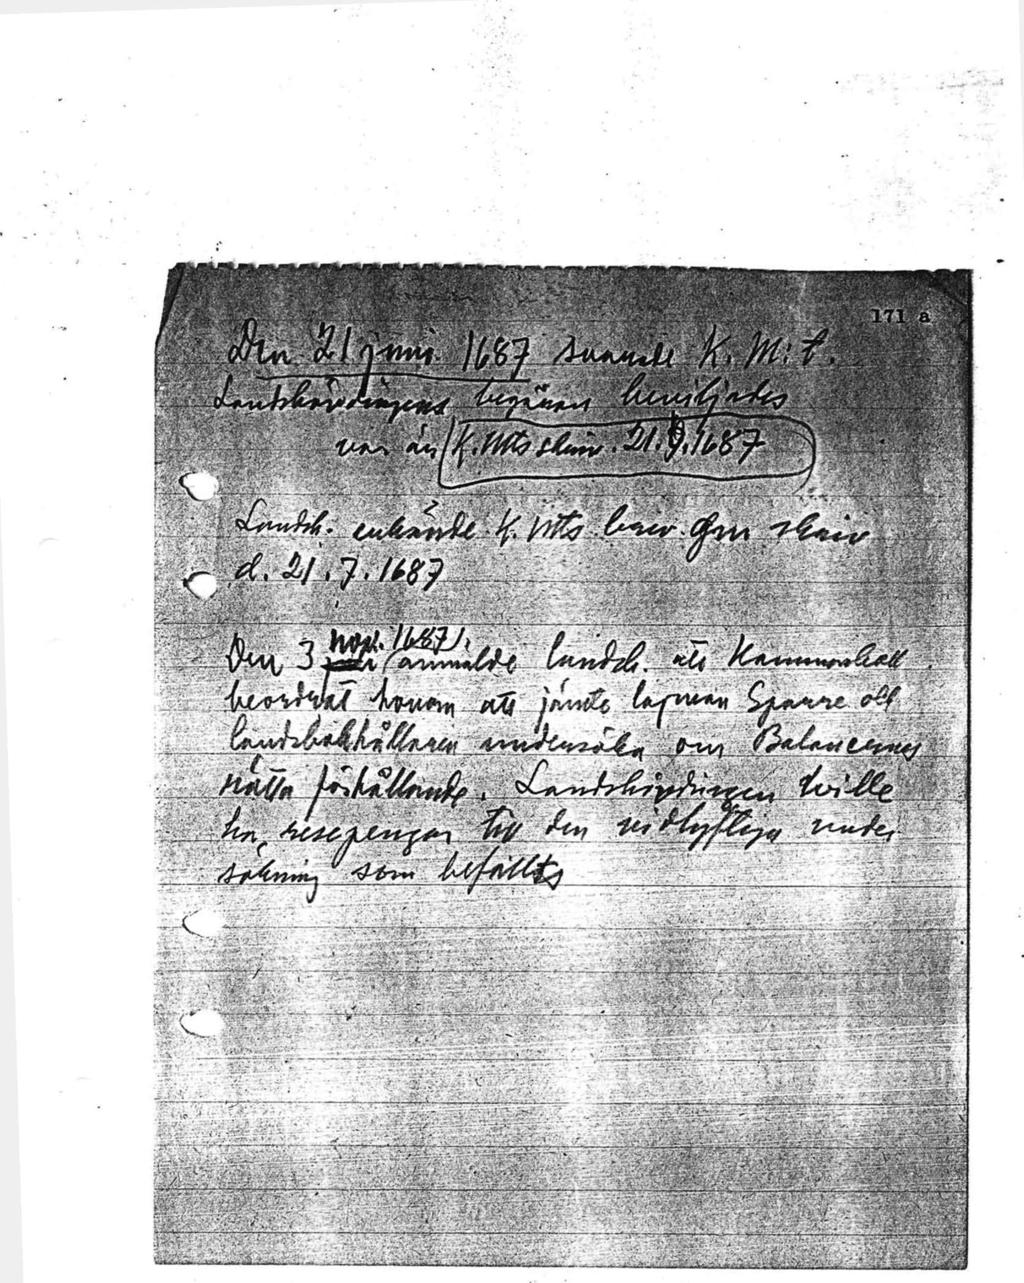 171 a
Den 21 juni 1687 svarade K. M:t.
Landshövdingens begäran beviljades
K. Mts skriv. 21.9.1687
Landsh. erkände K. Mts brev. Gm skriv
d. 21.7.1687
Den 3 nov. 1687 anmälde landsh. att Kammarkoll
beordrat honom att jämte lagman Sparre och
landsbokhållaren undersöka om Balancernes
rätta förhållande. Landshövdingen ville
ha resepengar till den vidlyftiga under
sökning som befallts